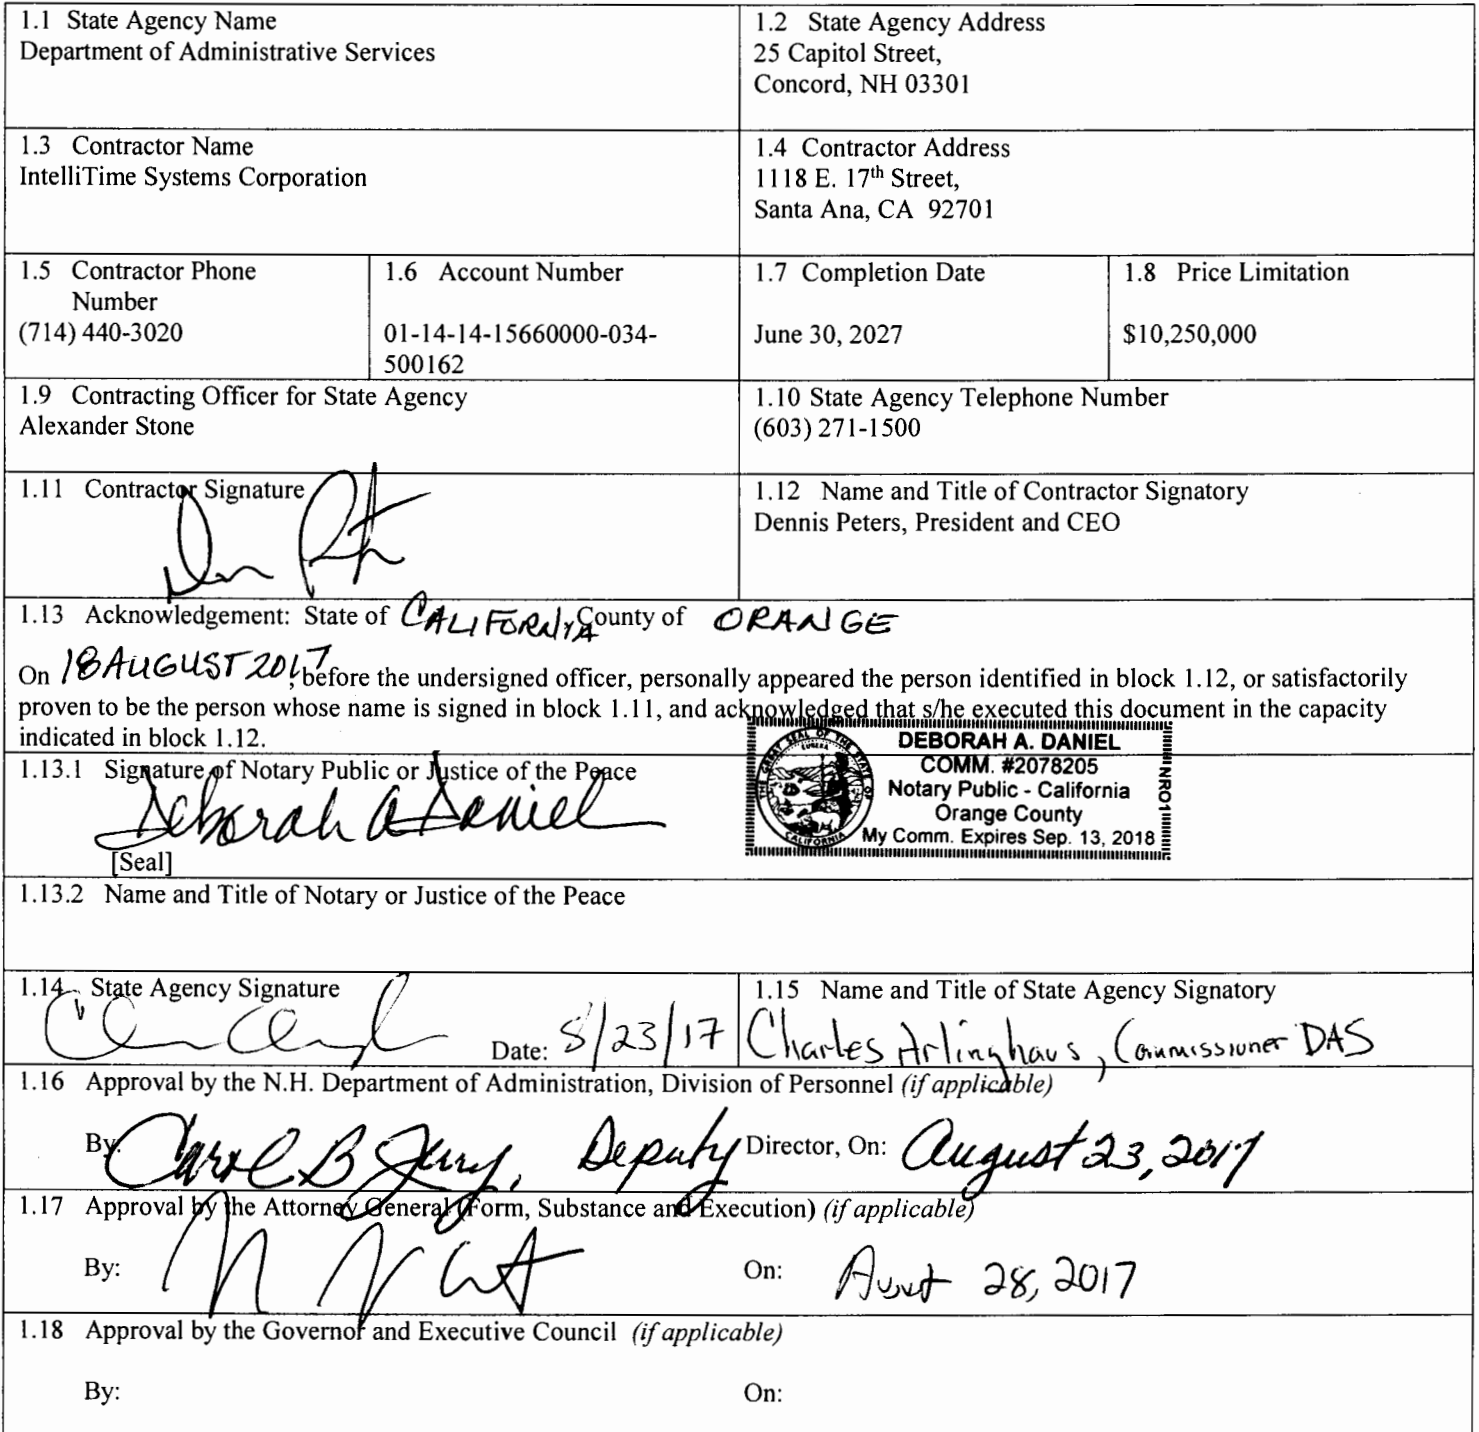 1.1 State Agency Name
Department of Administrative Services
1.2 State Agency Address
25 Capitol Street,
Concord, NH 03301
1.3 Contractor Name
IntelliTime Systems Corporation
1.4 Contractor Address
1118 E. 17th Street,
Santa Ana, CA 92701
1.5 Contractor Phone
Number
(714) 440-3020
1.6 Account Number
01-14-14-15660000-034-
500162
1.7 Completion Date
June 30, 2027
1.8 Price Limitation
$10,250,000
1.9 Contracting Officer for State Agency
Alexander Stone
1.10 State Agency Telephone Number
(603) 271-1500
1.11 Contractor Signature
1.12 Name and Title of Contractor Signatory
Dennis Peters, President and CEO
1.13 Acknowledgement: State of CALIFORNIA County of ORANGE
On 18 AUGUST 2017, before the undersigned officer, personally appeared the person identified in block 1.12, or satisfactorily
proven to be the person whose name is signed in block 1.11, and acknowledged that s/he executed this document in the capacity
indicated in block 1.12.
1.13.1 Signature of Notary Public or Justice of the Peace
Deborah A Daniel
[Seal]
THE GREAT SEAL OF THE STATE OF CALIFORNIA
EUREKA
DEBORAH A. DANIEL
COMM. #2078205
Notary Public - California
Orange County
My Comm. Expires Sep. 13, 2018
NRO1
1.13.2 Name and Title of Notary or Justice of the Peace
1.14 State Agency Signature
Date: 8/23/17
1.15 Name and Title of State Agency Signatory
Charles Arlinghaus, Commissioner DAS
1.16 Approval by the N.H. Department of Administration, Division of Personnel (if applicable)
By: Carol B , Deputy Director, On: August 23, 2017
1.17 Approval by the Attorney General (Form, Substance and Execution) (if applicable)
By:
On: 28, 2017
1.18 Approval by the Governor and Executive Council (if applicable)
By:
On: